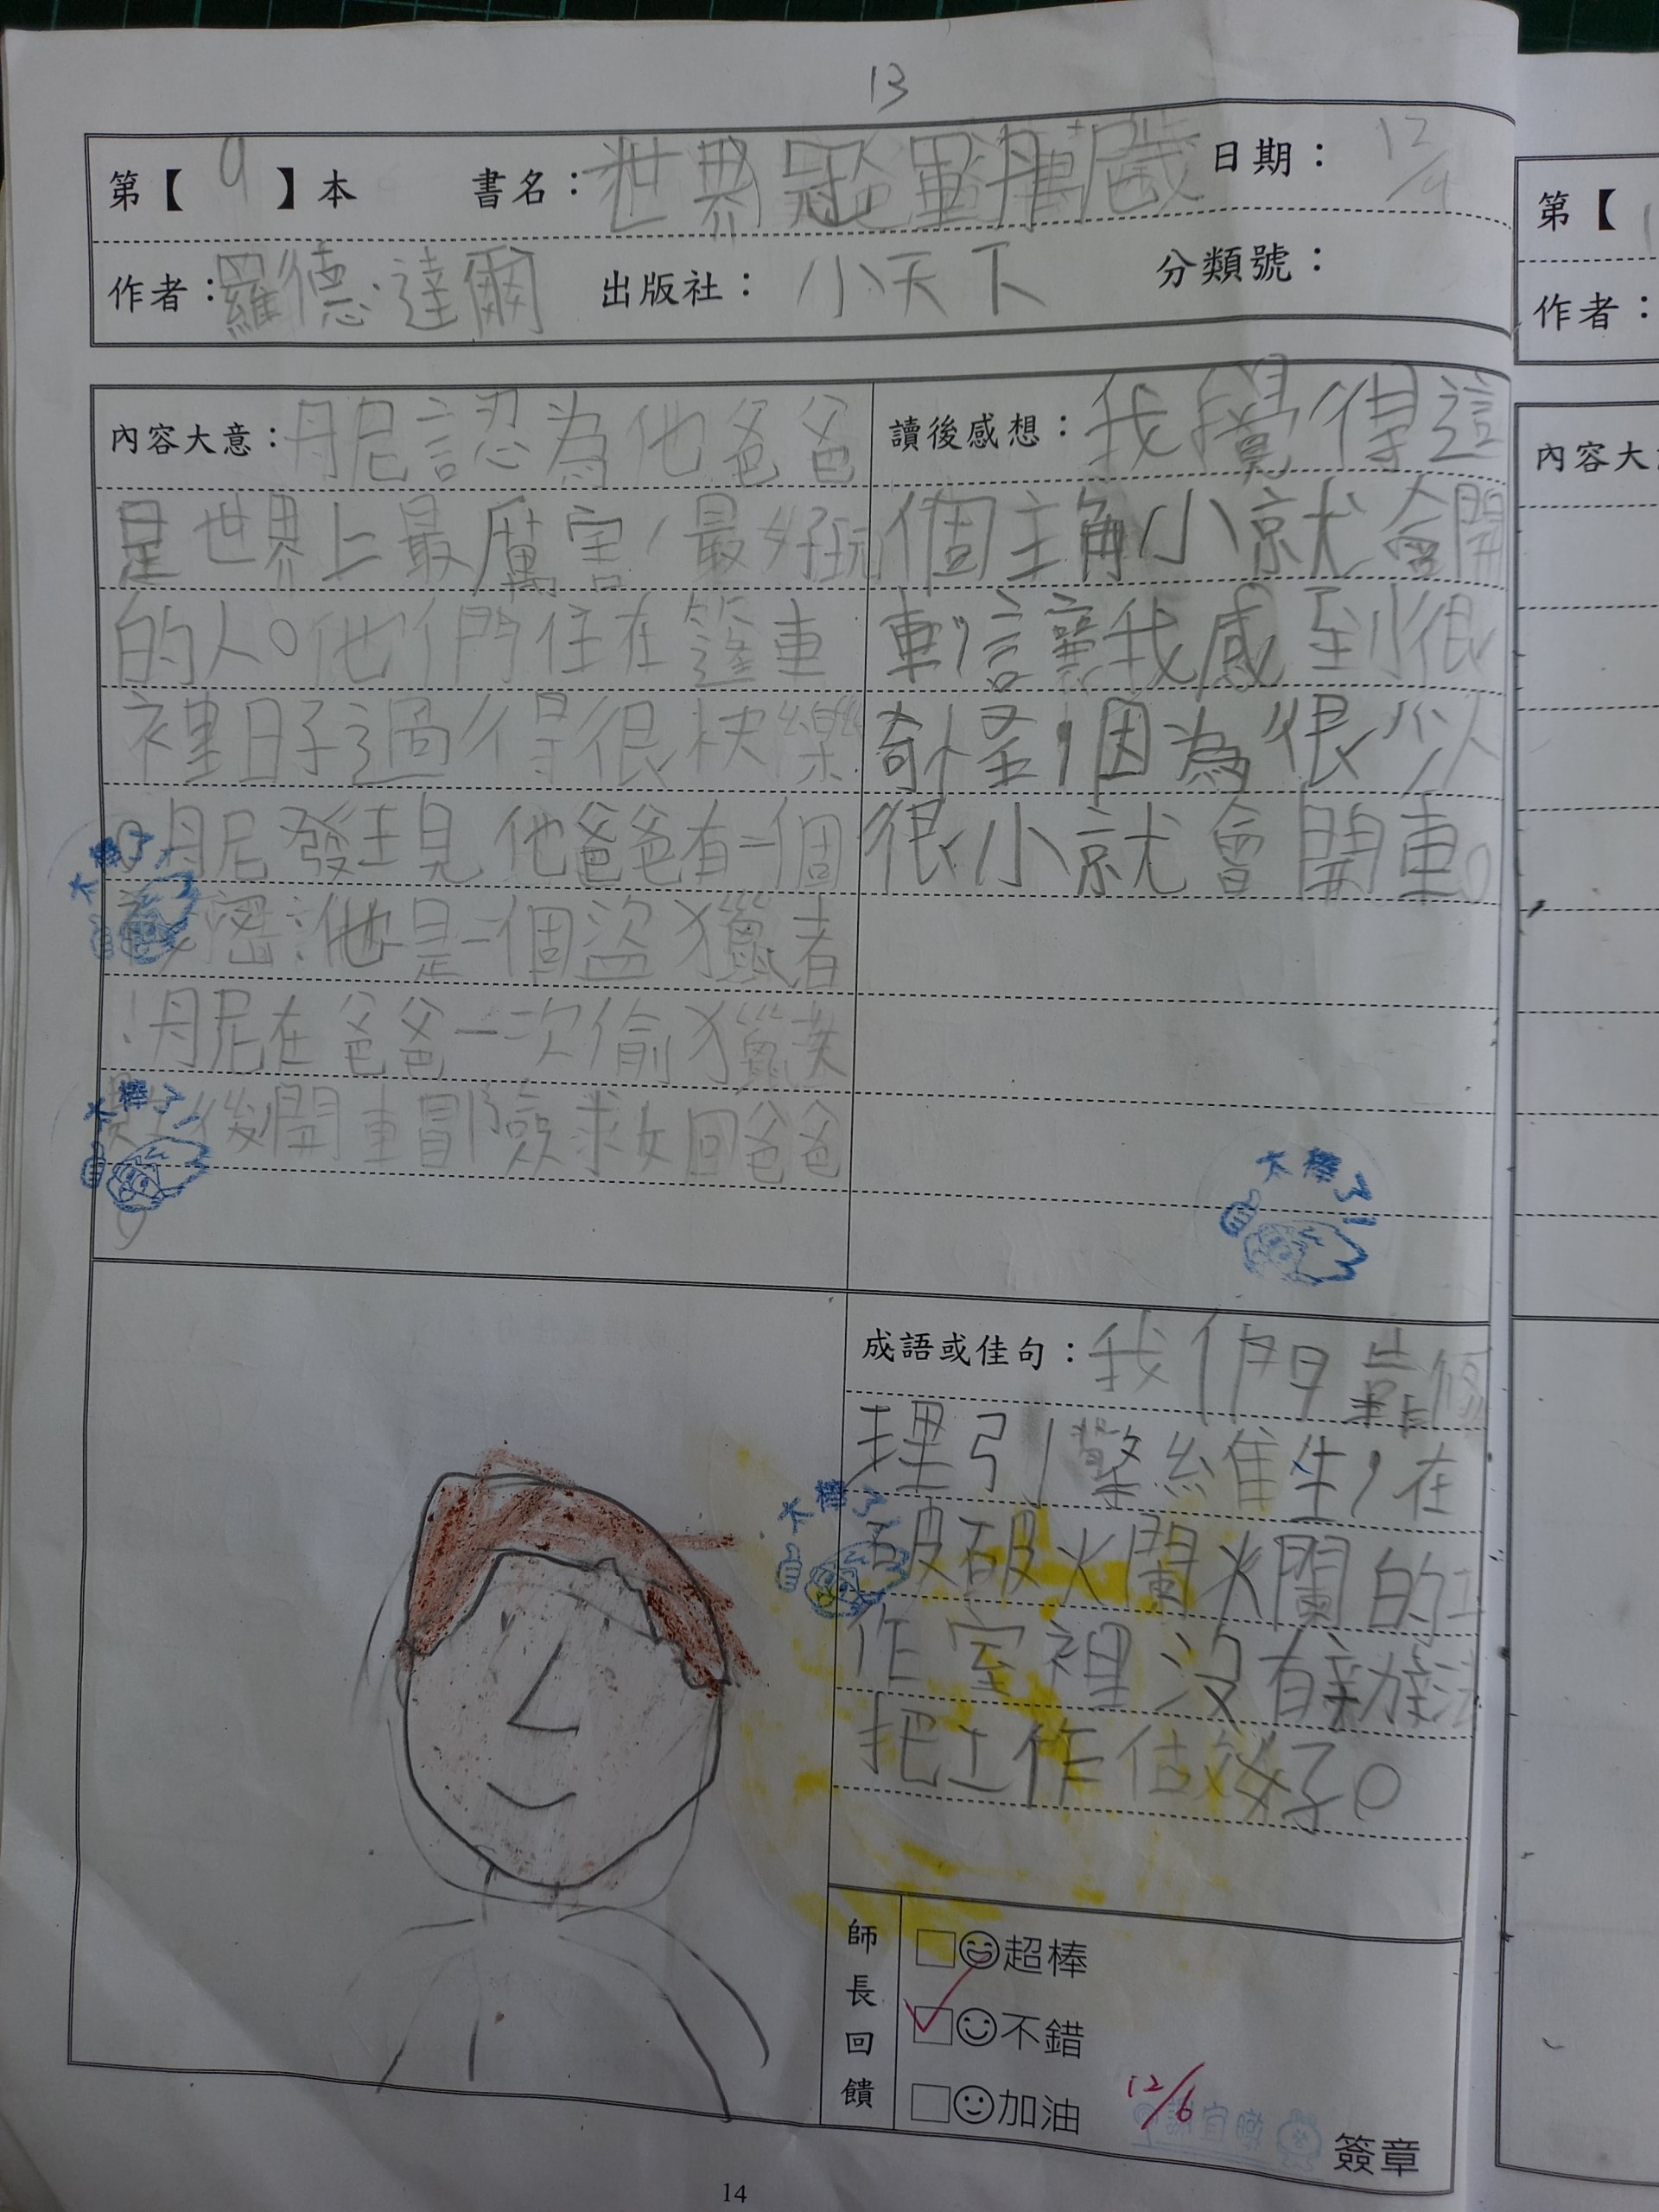 13
第【9】本 書名：世界冠軍丹尼 日期：12/
作者：羅德‧達爾 出版社：小天下 分類號：
內容大意：丹尼認為他爸爸
是世界上最厲害、最好玩
的人。他們住在篷車
裡日子過得很快樂
。丹尼發現他爸爸有一個
密：他是一個盜獵者
！丹尼在爸爸一次偷獵失
後開車冒險救回爸爸
。
讀後感想：我覺得這
個主角小就會開
車，讓我感到很
奇怪，因為很少人
很小就會開車。
太棒了！
太棒了！
太棒了！
成語或佳句：我們靠修
理引擎維生，在
破破爛爛的工
作室裡沒有辦法
把工作做好。
太棒了！
師長回饋
超棒
不錯
加油
12/6
簽章
14
第【
作者：
內容大